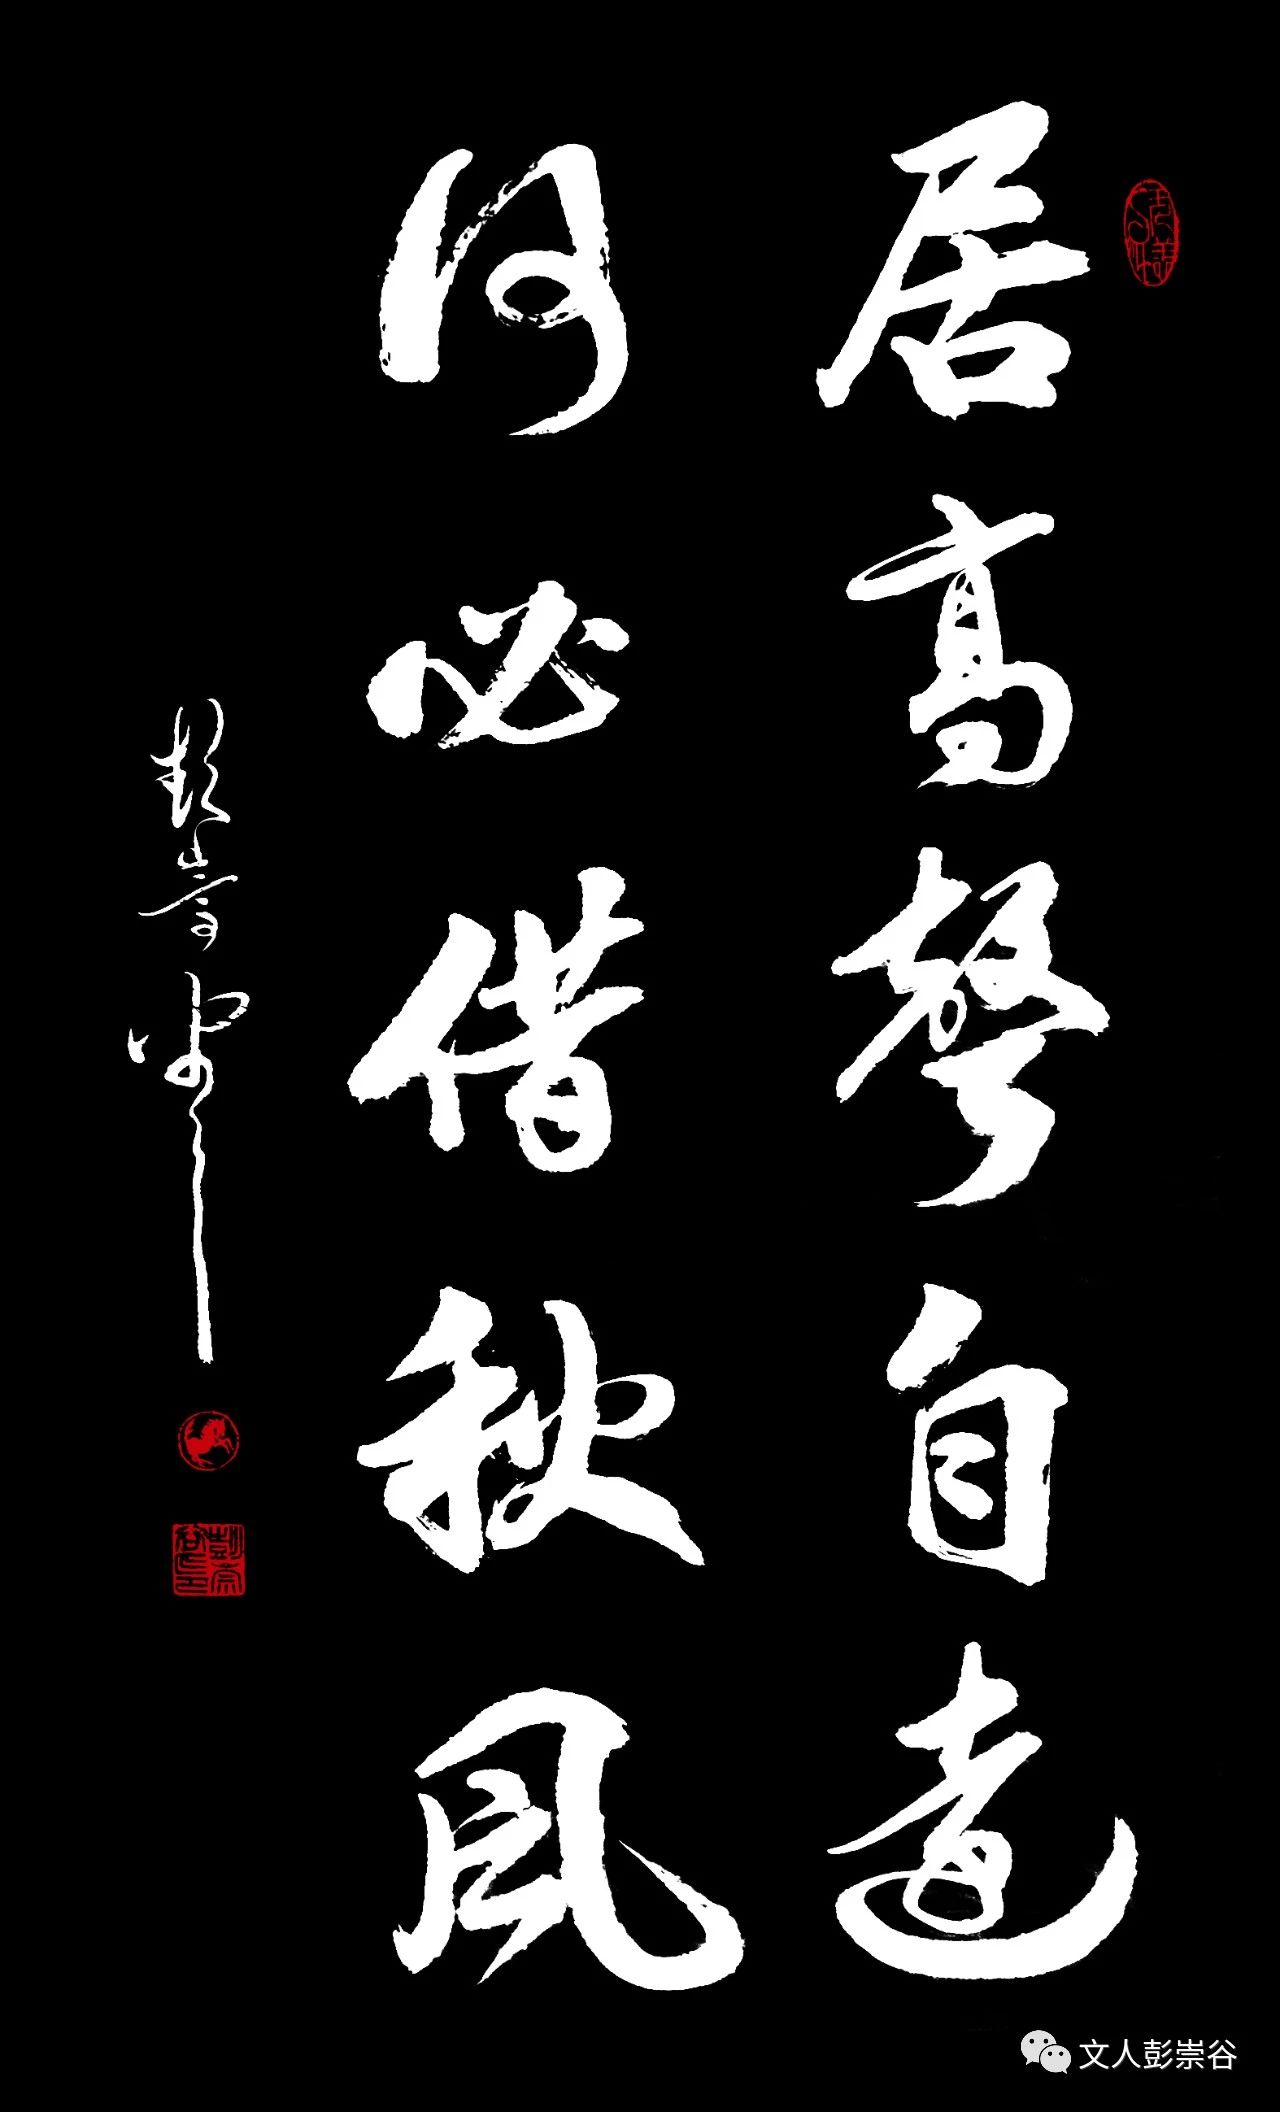 居高聲自遠
何必借秋風
彭崇谷
彭崇谷印
文人彭崇谷